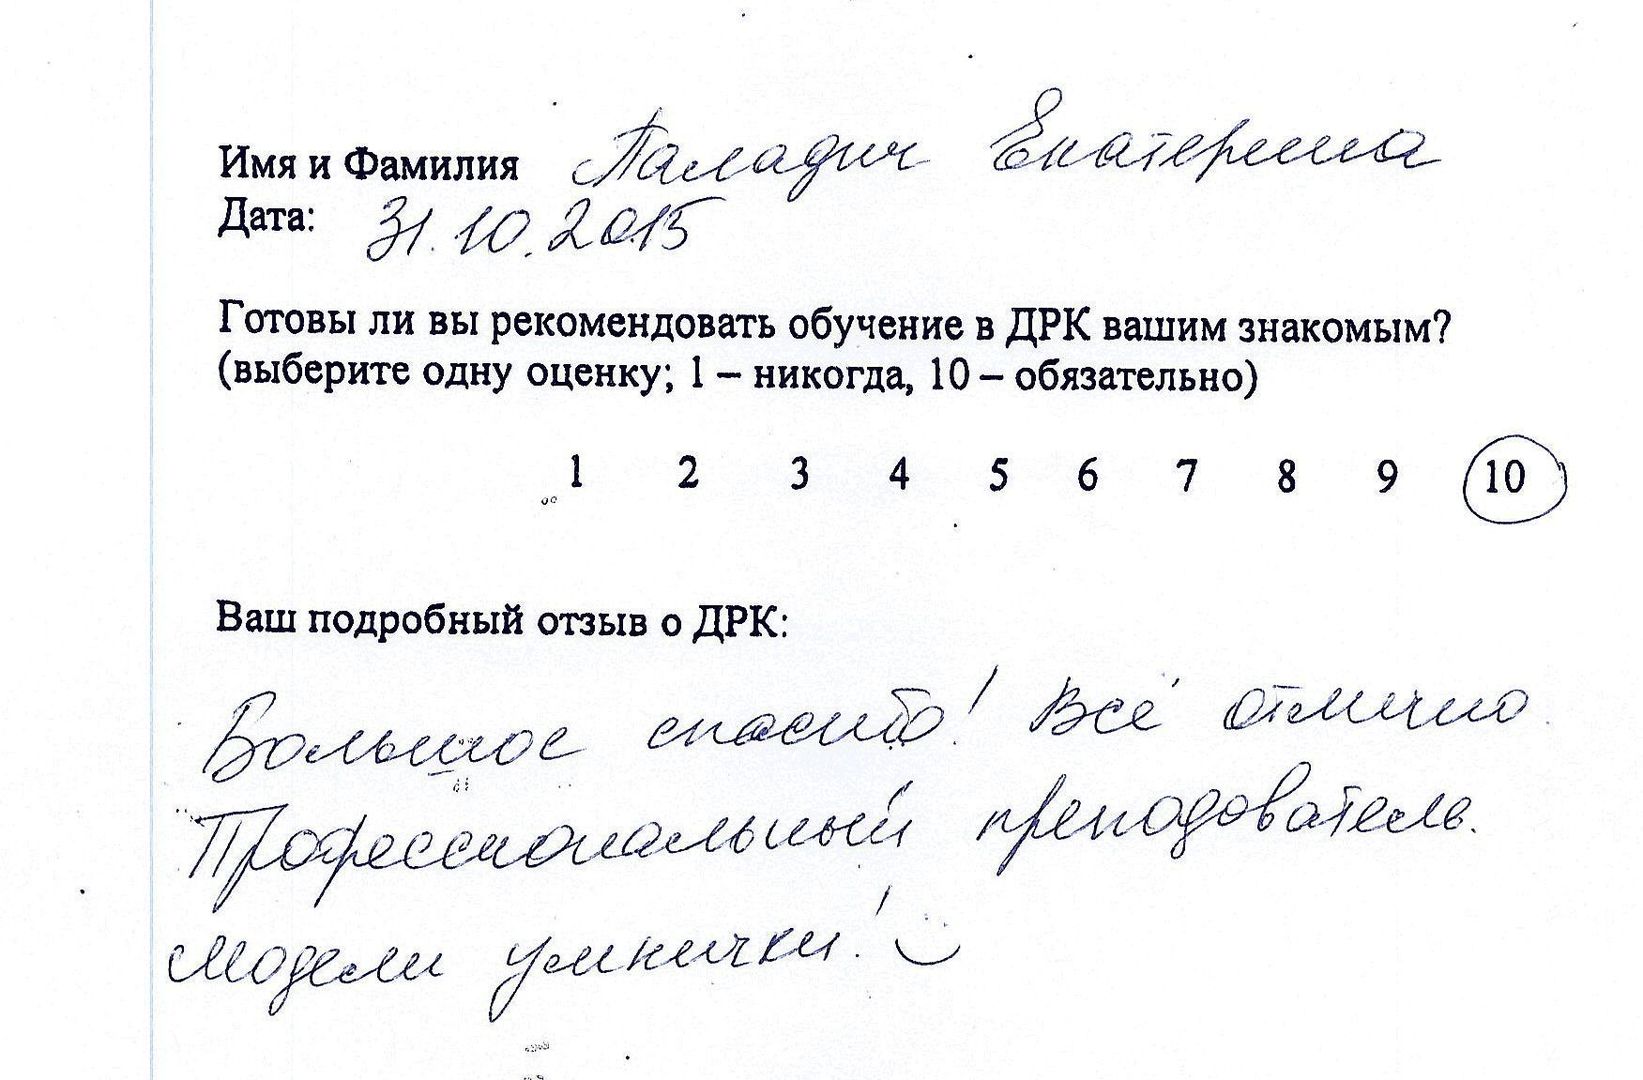 Имя и Фамилия Паладич Екатерина
Дата: 31.10.2015
Готовы ли вы рекомендовать обучение в ДРК вашим знакомым?
(выберите одну оценку; 1 – никогда, 10 – обязательно)
1 2 3 4 5 6 7 8 9 10
Ваш подробный отзыв о ДРК:
Большое спасибо! Всё отлично.
Профессиональный преподователь.
Модели умнички!